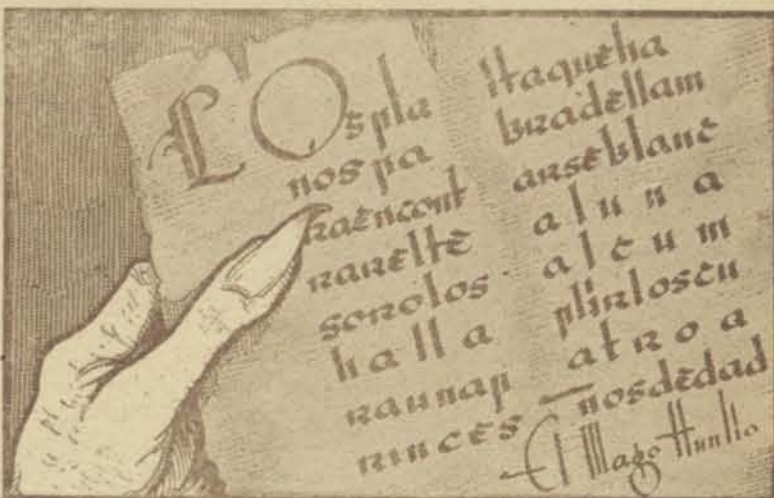 LOspla
nospa
raencont
rarelte
sorolos
halla
raunap
rinces
itaqueha
bradellam
arseblanc
aluna
alcum
plirloscu
atroa
nosdedad
El Mago